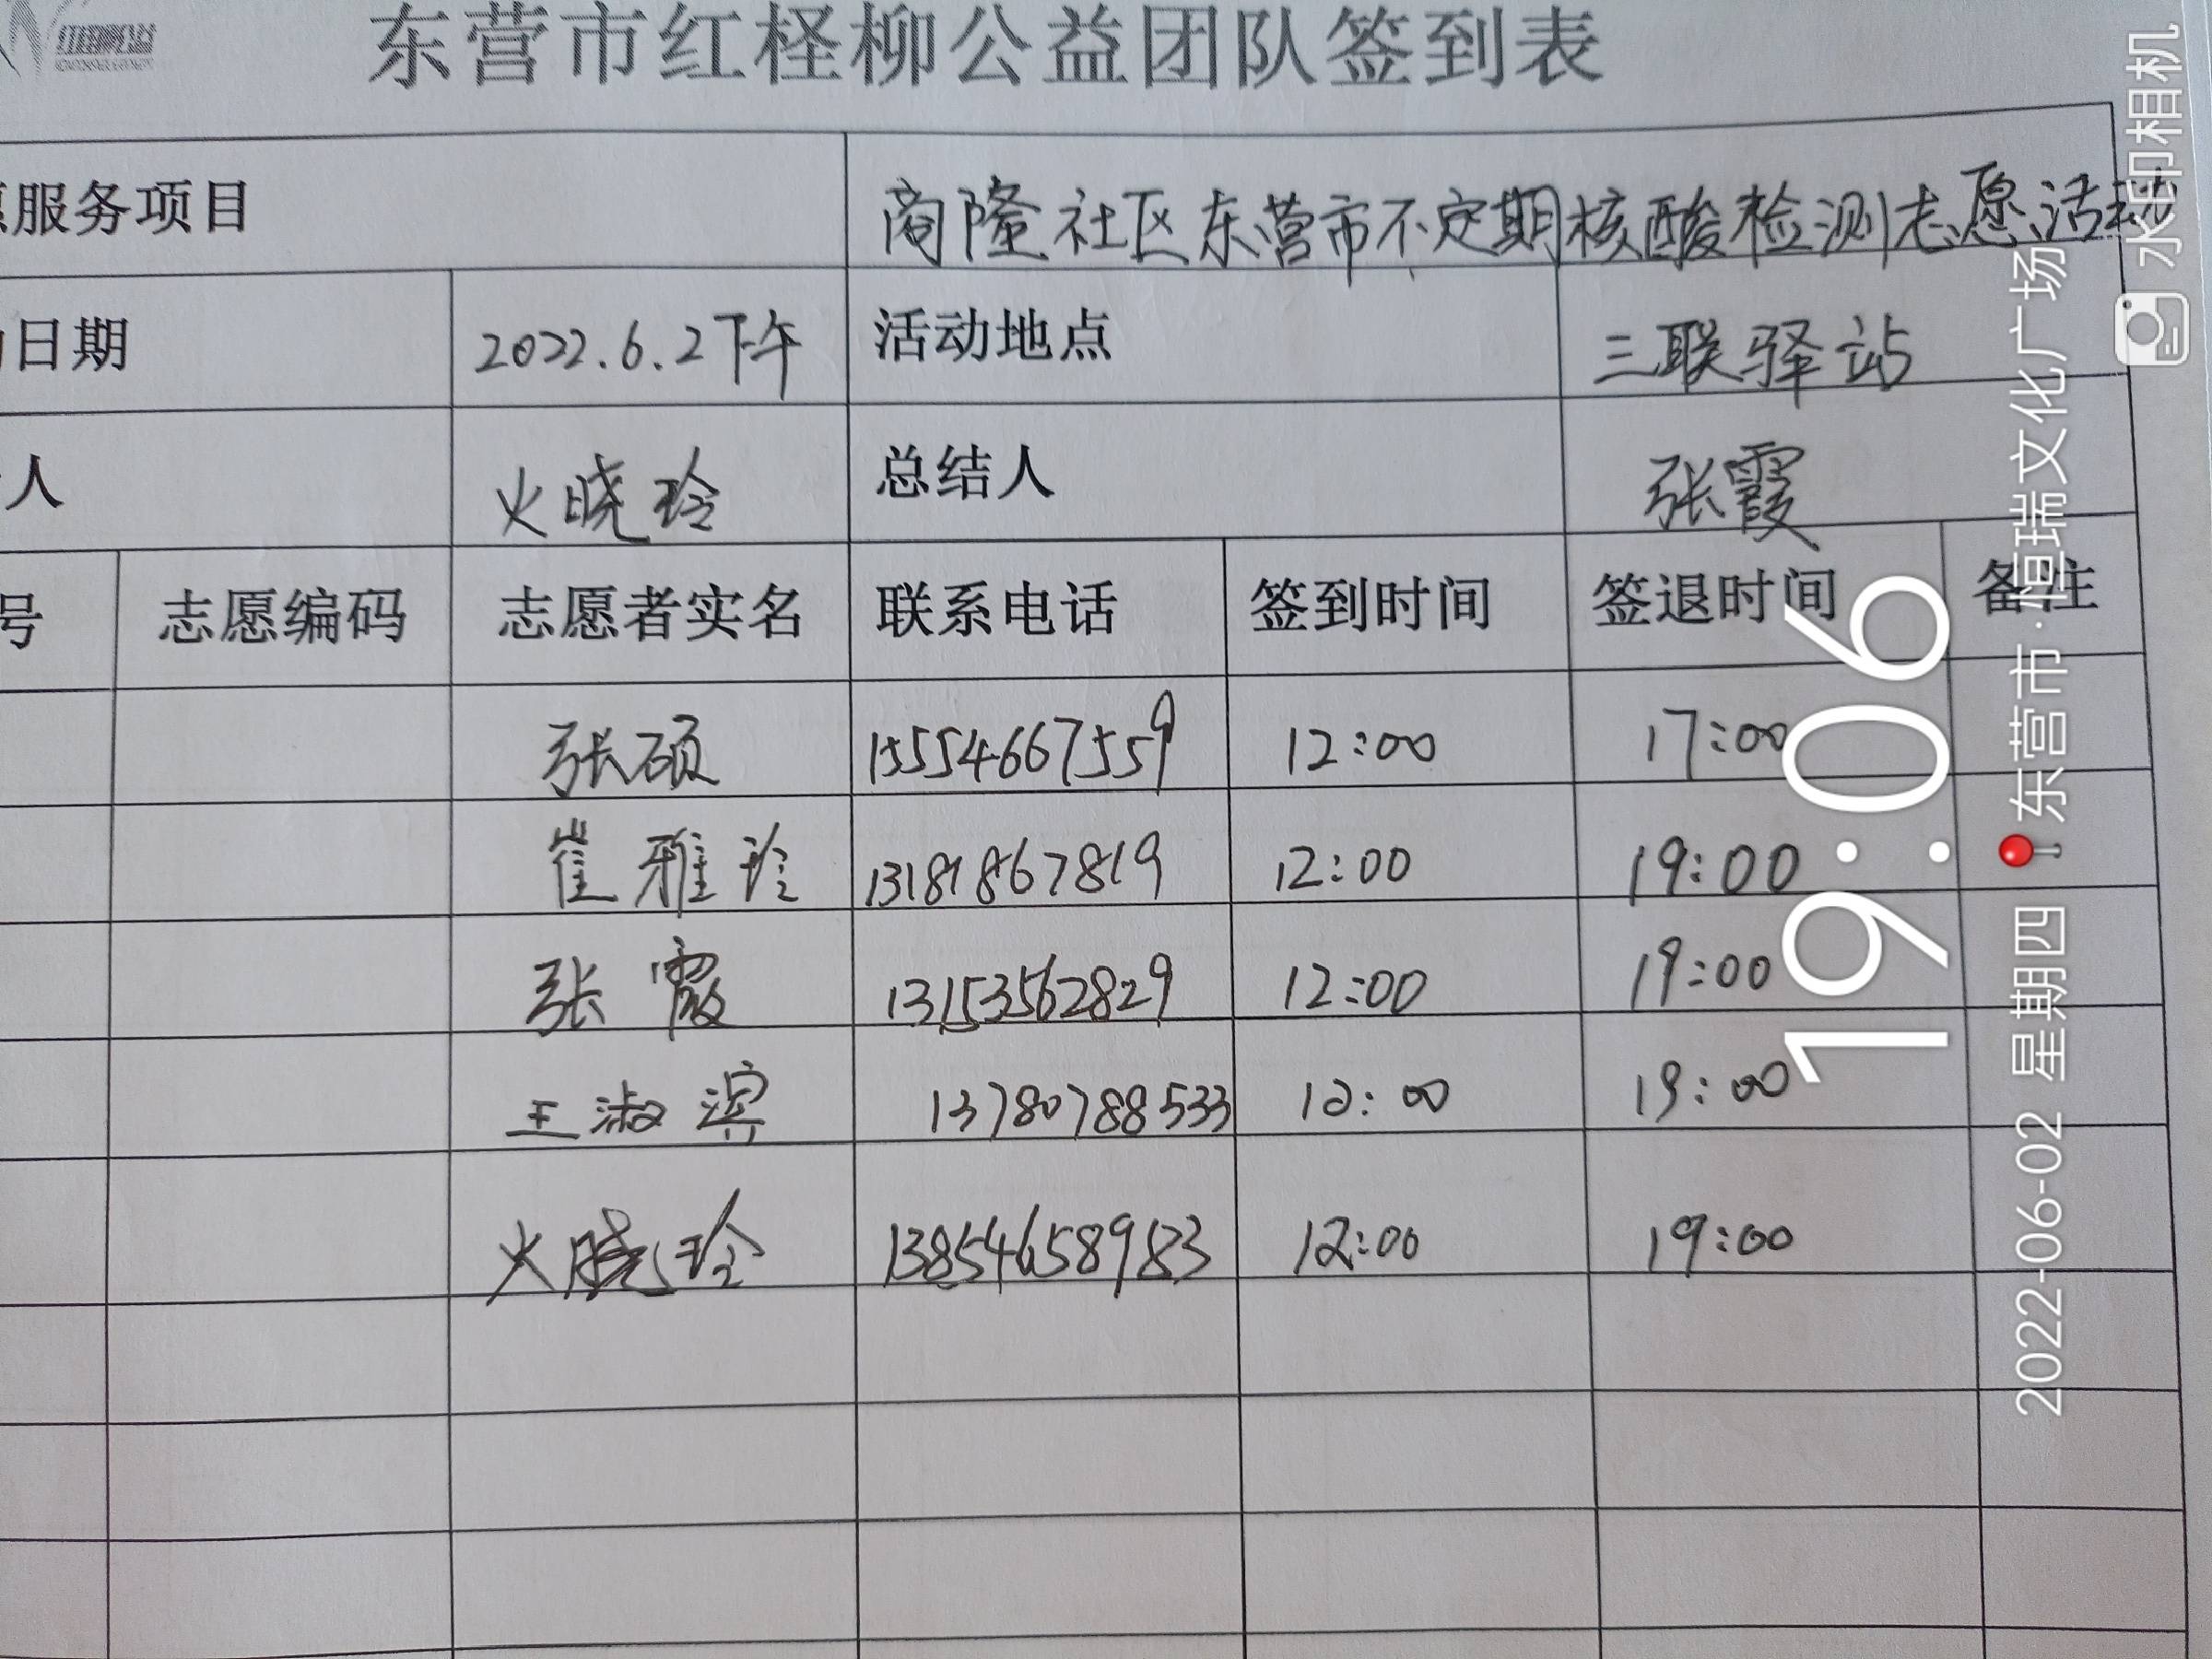 东营市红柽柳公益团队签到表
服务项目 商隆社区东营市不定期核酸检测志愿活动
日期 2022.6.2下午 活动地点 三联驿站
人 火晓玲 总结人 张霞
号 志愿编码 志愿者实名 联系电话 签到时间 签退时间 备注
张硕 15554667559 12:00 17:00
崔雅玲 13181867819 12:00 19:00
张霞 13153562829 12:00 19:00
王淑滨 13780788533 12:00 19:00
火晓玲 13854658983 12:00 19:00
水印相机
19:06
2022-06-02 星期四 东营市·恒瑞文化广场